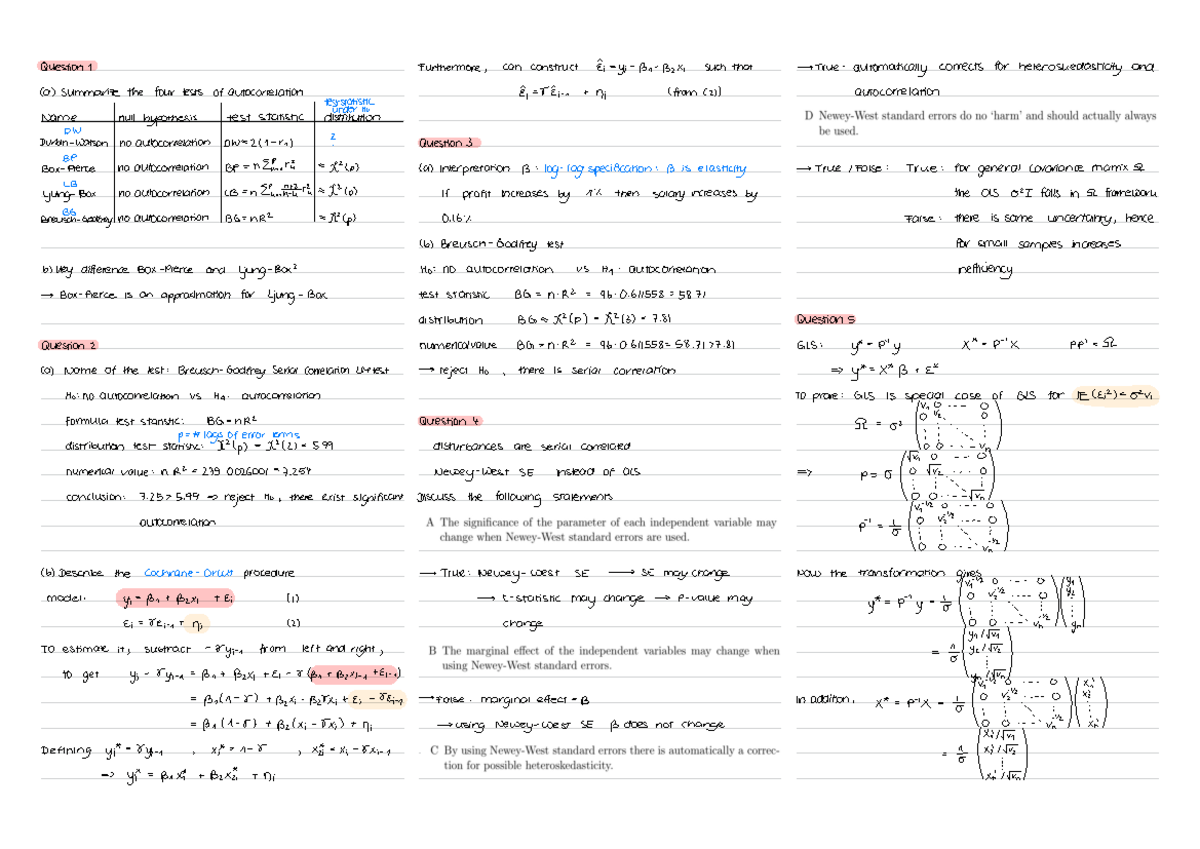 Question 1
(a) Summarize the four tests of autocorrelation
Name null hypothesis test statistic test statistic under H₀ distribution
DW
Durbin-Watson no autocorrelation DW≈2(1-r₁) ?
BP
Box-Pierce no autocorrelation BP = n Σ r²ₖ ≈ χ²(p)
LB
Ljung-Box no autocorrelation ≈ χ²(p)
BG
Breusch-Godfrey no autocorrelation BG = nR² ≈ χ²(p)
b) Key difference Box-Pierce and Ljung-Box?
→ Box-Pierce is an approximation for Ljung-Box
Question 2
(a) Name of the test: Breusch-Godfrey Serial Correlation LM test
H₀: no autocorrelation vs H₁: autocorrelation
formula test statistic: BG = nR²
p = # lags of error terms
distribution test statistic: χ²(p) = χ²(2) = 5.99
numerical value: nR² = 279·0.026001 = 7.254
conclusion: 7.25 > 5.99 ⇒ reject H₀, there exist significant
autocorrelation
(b) Describe the Cochrane-Orcutt procedure
model: yᵢ = β₁ + β₂xᵢ + εᵢ (1)
εᵢ = γεᵢ₋₁ + ηᵢ (2)
To estimate it, subtract -γyᵢ₋₁ from left and right,
to get yᵢ - γyᵢ₋₁ = β₁ + β₂xᵢ + εᵢ - γ(β₁ + β₂xᵢ₋₁ + εᵢ₋₁)
= β₁(1-γ) + β₂xᵢ - β₂γxᵢ + εᵢ - γεᵢ₋₁
= β₁(1-γ) + β₂(xᵢ - γxᵢ) + ηᵢ
Defining yᵢ* = γyᵢ₋₁ , x₁* = 1-γ , x₂ᵢ* = xᵢ - γxᵢ₋₁
⇒ yᵢ* = β₁x₁* + β₂x₂ᵢ* + ηᵢ
Furthermore, can construct ε̂ᵢ = yᵢ - β₁ - β₂xᵢ such that
ε̂ᵢ = γε̂ᵢ₋₁ + ηᵢ (from (2))
Question 3
(a) Interpretation β: log-log specification: β is elasticity
If profit increases by 1% then salary increases by
0.16%
(b) Breusch-Godfrey test
H₀: no autocorrelation vs H₁: autocorrelation
test statistic BG = n·R² = 96·0.611558 = 58.71
distribution BG ≈ χ²(p) = χ²(3) = 7.81
numerical value BG = n·R² = 96·0.611558 = 58.71 > 7.81
→ reject H₀, there is serial correlation
Question 4
disturbances are serial correlated
Newey-West SE instead of OLS
Discuss the following statements
A The significance of the parameter of each independent variable may
change when Newey-West standard errors are used.
→ True: Newey-West SE → SE may change
→ t-statistic may change → P-value may
change
B The marginal effect of the independent variables may change when
using Newey-West standard errors.
→ False: marginal effect = β
→ using Newey-West SE β does not change
C By using Newey-West standard errors there is automatically a correc-
tion for possible heteroskedasticity.
→ True: automatically corrects for heteroskedasticity and
autocorrelation
D Newey-West standard errors do no ‘harm’ and should actually always
be used.
→ True/False: True: for general covariance matrix Ω
the OLS σ²I falls in Ω framework
False: there is some uncertainty, hence
for small samples increases
inefficiency
Question 5
GLS: y* = P⁻¹y X* = P⁻¹X PP' = Ω
⇒ y* = X*β + ε*
To prove: GLS is special case of GLS for E(εᵢ²) = σ²vᵢ
Ω = σ² (v₁ 0 ... 0 0 v₂ ... 0 0 ... vₙ)
⇒ P = σ (√v₁ 0 ... 0 0 √v₂ ... 0 0 ... √vₙ)
P⁻¹ = 1/σ (v₁^-1/2 0 ... 0 0 v₂^-1/2 ... 0 0 ... vₙ^-1/2)
Now the transformation gives
y* = P⁻¹y = 1/σ (v₁^-1/2 0 ... 0 0 v₂^-1/2 ... 0 0 0 ... vₙ^-1/2) (y₁ y₂ ... yₙ)
= 1/σ (y₁/√v₁ y₂/√v₂ ... yₙ/√vₙ)
In addition, X* = P⁻¹X = 1/σ (v₁^-1/2 0 ... 0 0 v₂^-1/2 ... 0 0 0 ... vₙ^-1/2) (x₁' x₂' ... xₙ')
= 1/σ (x₁'/√v₁ x₂'/√v₂ ... xₙ'/√vₙ)